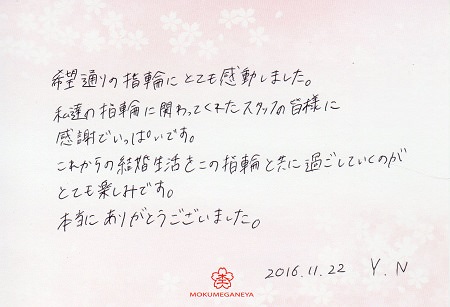 希望通りの指輪にとても感動しました。
私達の指輪に関わってくれたスタッフの皆様に
感謝でいっぱいです。
これからの結婚生活をこの指輪と共に過ごしていくのが
とても楽しみです。
本当にありがとうございました。
2016.11.22 Y.N
MOKUMEGANEYA